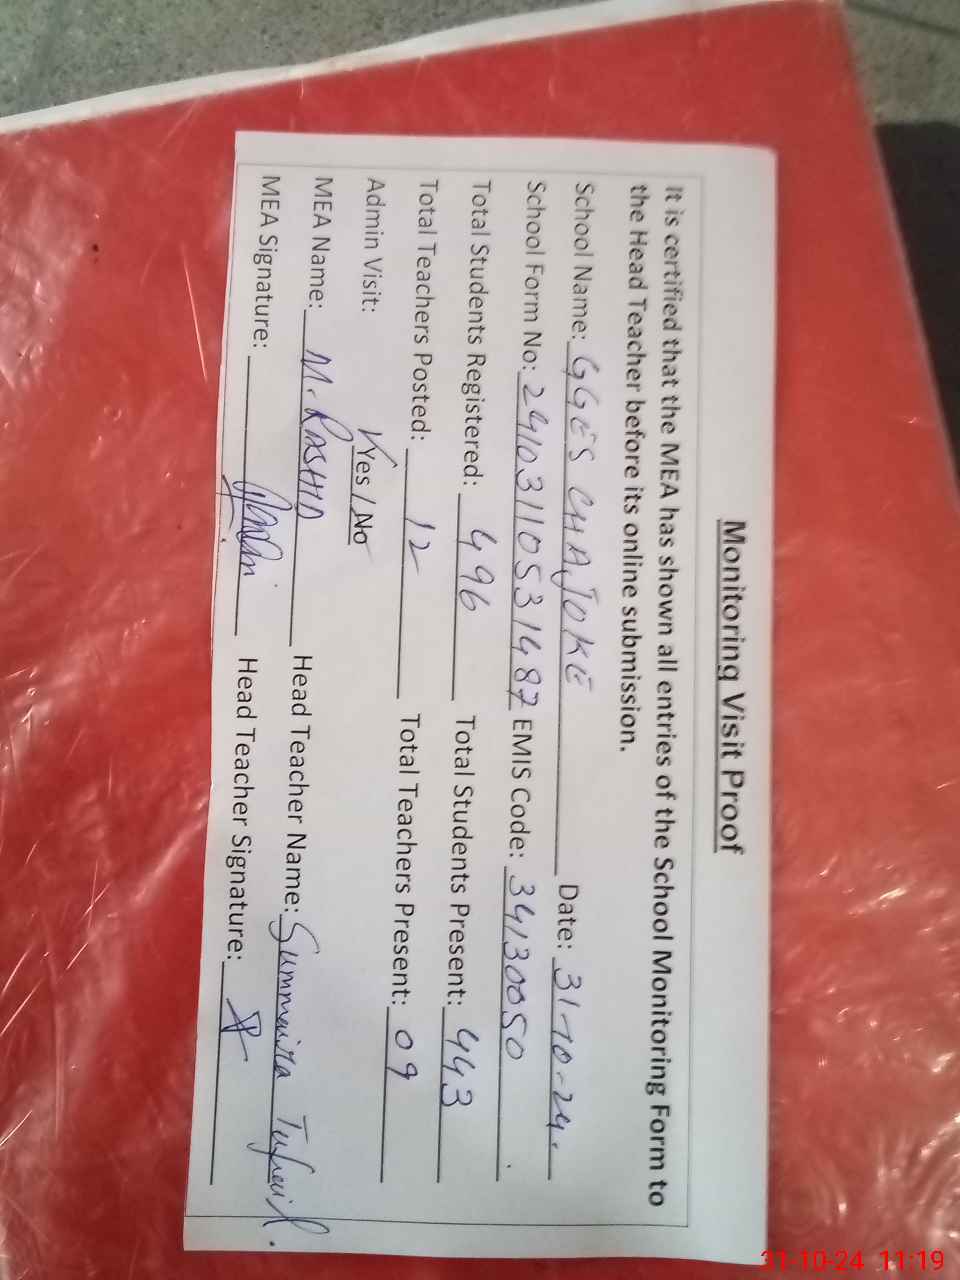 Monitoring Visit Proof
It is certified that the MEA has shown all entries of the School Monitoring Form to
the Head Teacher before its online submission.
School Name: GGES CHAJOKE Date: 31-10-24.
School Form No: 24103110531487 EMIS Code: 34130050
Total Students Registered: 496 Total Students Present: 443
Total Teachers Posted: 12 Total Teachers Present: 09
Admin Visit: Yes / No
MEA Name: M. RASHID Head Teacher Name: Tufail
MEA Signature: Head Teacher Signature:
31-10-24 11:19